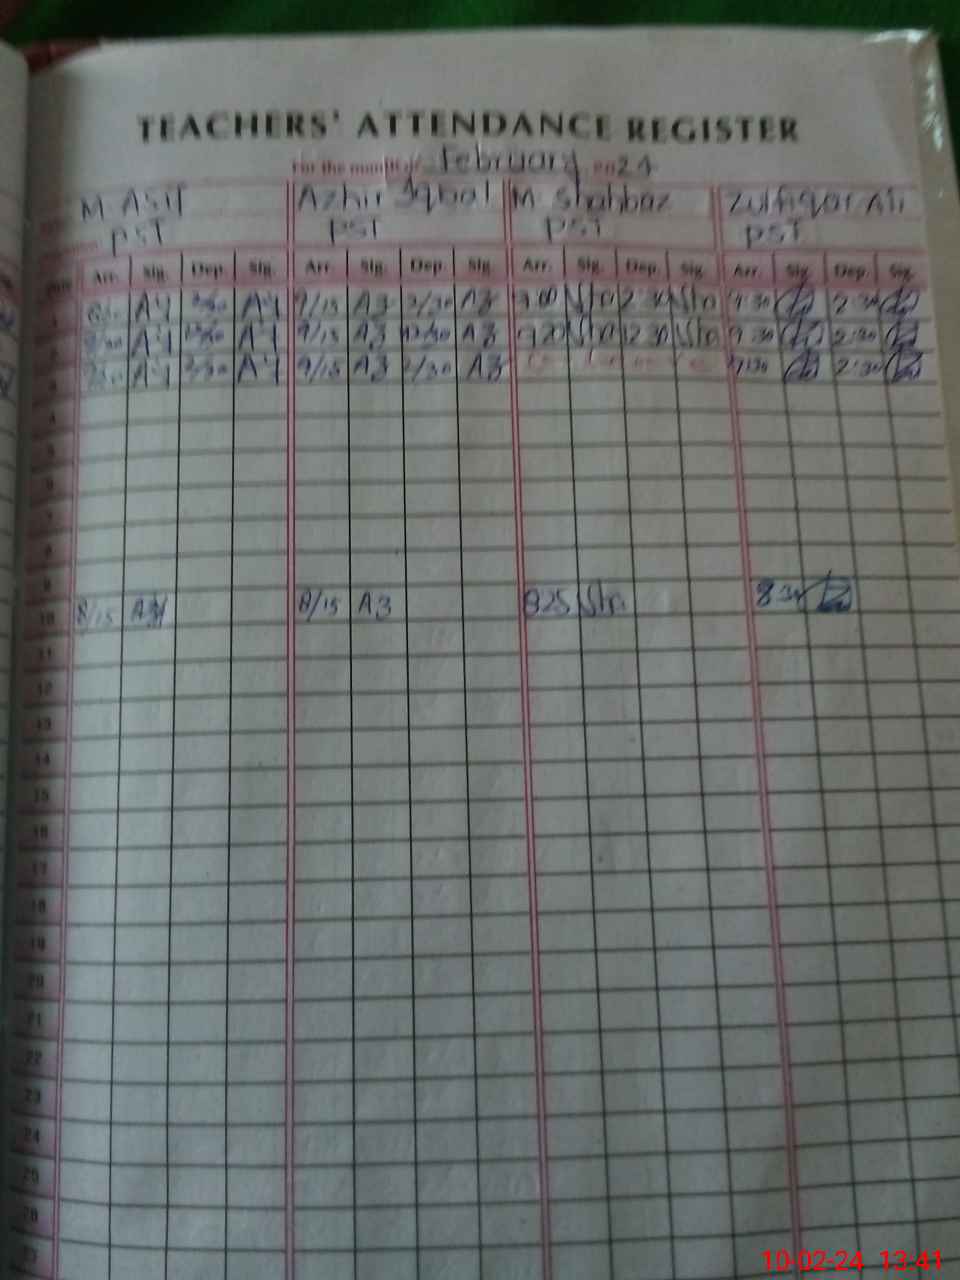 TEACHERS' ATTENDANCE REGISTER
For the month of February 2024
M Asif Azhir Iqbal M Shahbaz Zulfiqar Ali
PST PST PST PST
Arr. Sig. Dep. Sig. Arr. Sig. Dep. Sig. Arr. Sig. Dep. Sig. Arr. Sig. Dep. Sig.
1 A4 A4 9/15 A3 2/30 A3 9.00 2.30 9:30 2:30
2 A4 12/30 A4 9/15 A3 12/30 A3 9.20 12.30 9:30 2:30
3 A4 2/30 A4 9/15 A3 2/30 A3 9:30 2:30
4
5
6
7
8
9
10 8/15 8/15 A3 825 830
11
12
13
14
15
16
17
18
19
20
21
22
23
24
25
26
27
10-02-24 13:41